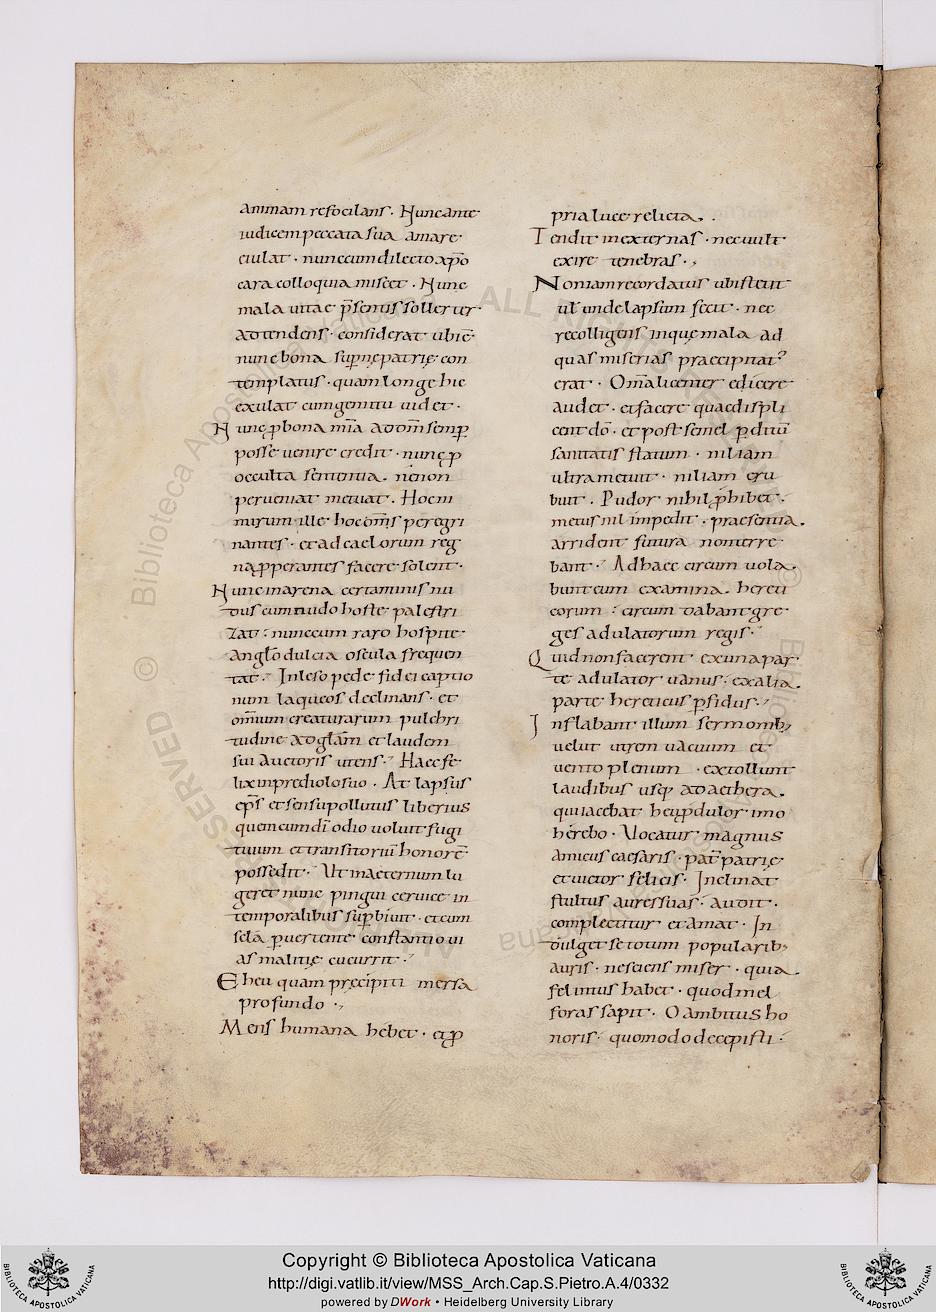 animam refocilans. Nunc ante
iudicem peccata sua amare
eiulat. nunc cum dilecto xp̄o
cara colloquia miscet. Nunc
mala uitae p̄sentis sollerter
adtendens. considerat ubi ē
nunc bona sup̱nę patrię con
templatus. quam longe hic
exulat cum gemitu uidet.
Nunc ꝓ bona mīa ad dom̄ semꝑ
posse uenire credit. nunc ꝓ
occulta sententia. ne non
perueniat metuat. Hoc ni
mirum ille. hoc om̄s peregri
nantes. et ad caelorum reg
na ꝓperantes facere solent.
Nunc in arena certaminis nu
dus cum nudo hoste palestri
zat: nunc cum raro hospite
anglo dulcia oscula frequen
tat. Inleso pede fidei captio
num laqueos declinans. et
om̄ium creaturarum pulchri
tudine ad gl̄am et laudem
sui auctoris utens. Haec fe
lix in prediolo suo. At lapsus
ep̄s et sensu pollutus liberius
quencum dī odio uoluit fugi
tiuum et transitoriū honorē
possedit. Ut in aeternum lu
geret nunc pingui ceruice in
temporalibus sup̱biuit. et cum
sc̄la p̱uertente constantio ui
as malitię cucurrit.
Eheu quam pręcipiti mersa
profundo.,
Mens humana hebet. et ꝓ
pria luce relicta.
Tendit in externas. nec uult
exire tenebras.,
Non iam recordatus ubi steterit
ul' unde lapsum fecit. nec
recolligens in quę mala ad
quas miserias praecipitat'
erat. Om̄a licenter edicere
audet. et facere quae displi
cent dō. et post semel p̱ditū
sanitatis statum. nil iam
ultra metuit. nil iam eru
buit. Pudor nihil ꝓhibet.
metus nil impedit. praesentia
arrident futura non terre
bant. Ad haec circum uola
bunt eum examina hereti
corum: circum dabant gre
ges adulatorum regis.
Quid non facerent ex una par
te adulator uanus. ex alia
parte hereticus p̱fidus.
Inflabant illum sermonib;
uelut utrem uacuum et
uento plenum. extollunt
laudibus usq; ad aethera.
qui iacebat heu ꝓ dulor imo
herebo. Vocatur magnus
amicus caesaris. pat̄ patrię
et uictor felicis. Inclinat
stultus aures suas. audit.
complectitur et amat. In
dulget se totum popularib;
auris. nesciens miser. quia
fel intus habet. quod mel
foras sapit. O ambitus ho
noris. quomodo decepisti.
Copyright © Biblioteca Apostolica Vaticana
http://digi.vatlib.it/view/MSS_Arch.Cap.S.Pietro.A.4/0332
powered by DWork • Heidelberg University Library
BIBLIOTECA APOSTOLICA VATICANA
BIBLIOTECA APOSTOLICA VATICANA